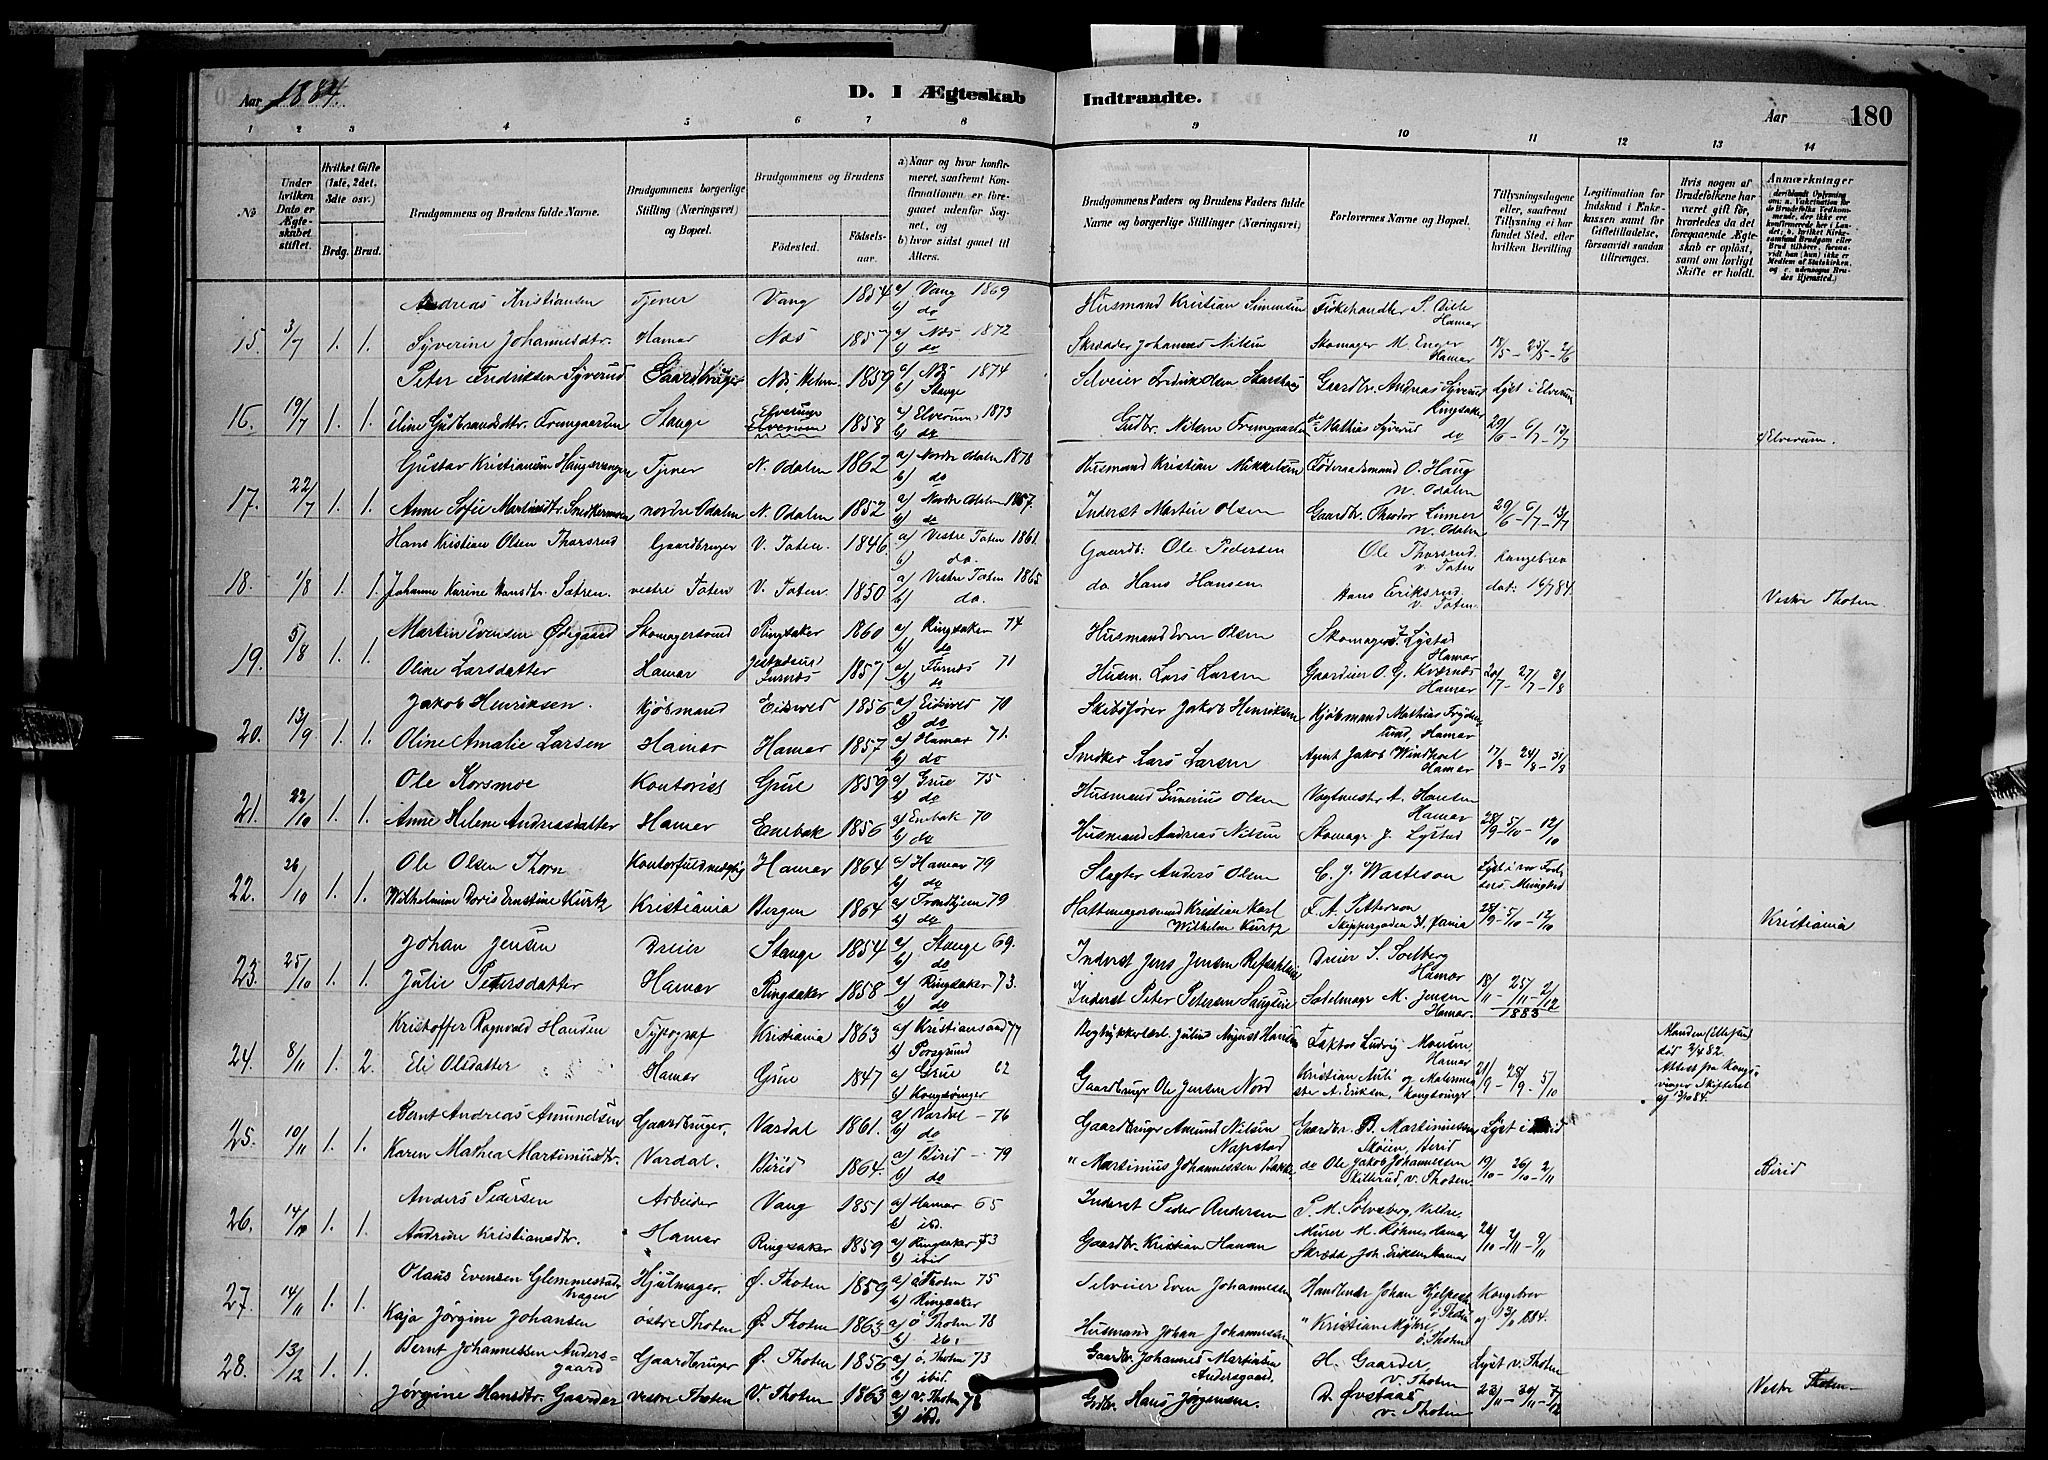 Aar 1884.
D. I Ægteskab Indtraadte.
Aar 180
1 2 3 4 5 6 7 8 9 10 11 12 13 14
No
Under hvilken Dato er Ægteskabet stiftet.
Hvilket Gifte (1ste, 2det, 3die osv.)
Brdg. Brud.
Brudgommens og Brudens fulde Navne.
Brudgommens borgerlige Stilling (Næringsvei) og Bopæl.
Brudgommens og Brudens
Fødested. Fødselsaar.
a) Naar og hvor konfirmeret, saafremt Konfirmationen er foregaaet udenfor Sognet, og
b) hvor sidst gaaet til Alters.
Brudgommens Faders og Brudens Faders fulde Navne og borgerlige Stillinger (Næringsvei)
Forlovernes Navne og Bopæl.
Tillysningsdagene eller, saafremt Tillysning ei har fundet Sted, efter hvilken Bevilling
Legitimation for Indskud i Enkekassen samt for Giftetilladelse, forsaavidt saadan tiltrænges.
Hvis nogen af Brudefolkene har været gift før, hvorledes da det foregaaende Ægteskab er opløst, samt om lovligt Skifte er holdt.
Anmærkninger
Andreas Kristiansen Tjener Vang 1854 a) Vang 1869 b) do Husmand Kristian Simensen Fiskehandler S. Hamar
15. 3/7 1. 1. Syverine Johannesdtr. Hamar Næs 1857 a) Næs 1872 b) do Skræder Johannes Nilsen Skomager M. Enger Hamar 18/5 - 25/5 - 2/6
Peter Fredriksen Syverud Gaardbruger Næs Hedm. 1859 a) Næs 1874 b) Stange Selveier Fredrik Olsen Gaardbr. Andreas Syverud Ringsaker Lyst i Elverum
16. 19/7 1. 1. Eline Gudbrandsdtr. Stange Elverum 1858 a) Elverum 1873 b) do Gudbr. Nilsen do Mathias Syverud do 29/6 - 6/7 - 13/7 Elverum.
Gustav Kristiansen Tjener N. Odalen 1862 a) Nordre Odalen 1878 b) do Husmand Kristian Mikkelsen Føderaadsmand O. Haug N. Odalen
17. 22/7 1. 1. Anne Sofie Martinsdtr. nordre Odalen N. Odalen 1852 a) Nordre Odalen 1867. b) do Inderst Martin Olsen Gaardbr. Theodor Linner N. Odalen 29/6 - 6/7 - 13/7
Hans Kristian Olsen Thorsrud Gaardbruger V. Toten. 1846. a) Vestre Toten 1861. b) do. Gaardb: Ole Pedersen Ole Thorsrud v. Toten Kongebrev
18. 1/8 1. 1. Johanne Karine Hansdtr. Sætren. vestre Toten V. Toten. 1850 a) Vestre Toten 1865 b) do. do Hans Hansen Hans Eriksrud V. Toten. dat: 16/7 84. Vestre Thoten
Martin Evensen Ødegaard Skomagersvend Ringsaker 1860 a) Ringsaker 74 b) do Husmand Even Olsen Skomager J. Lystad Hamar
19. 5/8 1. 1. Oline Larsdatter Hamar Furnæs 1857 a) Furnæs 71 b) do Husm. Lars Larsen Gaardeier O. G. Kværnæs Hamar 20/7 - 27/7 - 3/8
Jakob Henriksen. Kjøbmand Eidsvold 1856 a) Eidsvold 70 b) do Skibsfører Jakob Henriksen Kjøbmand Mathias Frydenlund, Hamar
20. 13/9 1. 1. Oline Amalie Larsen Hamar Hamar 1857 a) Hamar 71. b) do Snedker Lars Larsen Agent Jakob Windhoel Hamar 17/8 - 24/8 - 31/8
Ole Korsmoe Kontorist Grue 1859 a) Grue 75 b) do Husmand Gunerius Olsen Vogtmester A. Hansen Hamar
21. 22/10 1. 1. Anne Helene Andreasdatter Hamar Enebak 1856 a) Enebak 70 b) do Husmand Andreas Nilsen Skomager J. Lystad 28/9 - 5/10 - 12/10
Ole Olsen Thorn Kontorfuldmægtig Hamar 1864 a) Hamar 79 b) do Slagter Anders Olsen C. J. Wasteson Lyst i vor Frelsers Menighed
22. 26/10 1. 1. Wilhelmine Doris Ernstine Kurtz Kristiania Bergen 1864 a) Trondhjem 79 b) do Hattemagersvend Kristian Karl Wilhelm Kurtz F. A. Petterson Skippergaden 31, Xania 28/9 - 5/10 - 12/10 Kristiania
Johan Jensen Dreier Stange 1854 a) Stange 69. b) do Inderst Jens Jensen Dreier S. Soelberg Hamar
23. 25/10 1. 1. Julie Petersdatter Hamar Ringsaker 1858 a) Ringsaker 73. b) do Inderst Peter Petersen Sadelmager M. Jensen Hamar. 18/11 - 25/11 - 2/12 1883
Kristoffer Ragnvald Hansen Typograf Kristiania 1863 a) Kristiansand 77 b) Porsgrund Bogtrykker Julius August Hansen Faktor Ludvig Monsen Hamar Manden død 2/4 82. Attest fra Kongsvinger Skifteret af 13/10 84.
24. 8/11 1. 2. Eli Olsdatter Hamar Grue 1847 a) Grue 62 b) Kongsvinger Gaardbruger Ole Jensen Nord Kristian Auli og Malermester A. Eriksen, Kongsvinger 21/9 - 28/9 - 5/10
Bernt Andreas Amundsen Gaardbruger, Vardal 1861. a) Vardal - 76 b) do Gaardbruger Amund Nilsen Napstad Gaardbr. B. Martiniussen Skøien, Birid Lyst i Birid
25. 10/11 1. 1. Karen Mathea Martiniusdtr. Vardal. Birid 1864. a) Birid - 79 b) do " Martinius Johannessen do Ole Jakob Johannessen Skillerud, v. Thoten 19/10 - 26/10 - 2/11 Birid
Anders Pedersen Arbeider Vang 1851 a) Hamar 65 b) ibd. Inderst Peder Andersen P. M. Solvsberg, Murer M. Røhne, Hamar
26. 14/10 1. 1. Andrine Kristiansdtr. Hamar Ringsaker 1859 a) Ringsaker 73 b) ibid Gaardbr. Kristian Hanan Skrædd Joh. Eriksen Hamar 26/10 - 2/11 - 9/11
Olaus Evensen Glemmestadhagen Hjulmager. Ø. Thoten 1859 a) ø Thoten 75 b) Ringsaker Selveier Even Johannessen Handlende Johan ø Thoten Kongebrev
27. 14/11 1. 1. Kaja Jørgine Johansen østre Thoten Ø. Thoten 1863 a) ø Thoten 78 b) ib. Husmand Johan Johannessen " Kristian Myhre, ø. Thoten af 13/11 1884.
Bernt Johannessen Andersgaard Gaardbruger Ø. Thoten 1856 a) ø. Thoten 73 b) ibid. Gaardbr. Johannes Martinsen Andersgaard, H. Gaarder, V. Thoten Lyst v. Thoten
28. 13/12 1. 1. Jørgine Hansdtr. Gaarder vestre Thoten V. Thoten 1863 a) v. Thoten 78 b) ibd. Gdbr. Hans Jørgensen. D. Øvstaas v. Thoten 23/11 - 30/11 - 7/12 Vestre Thoten